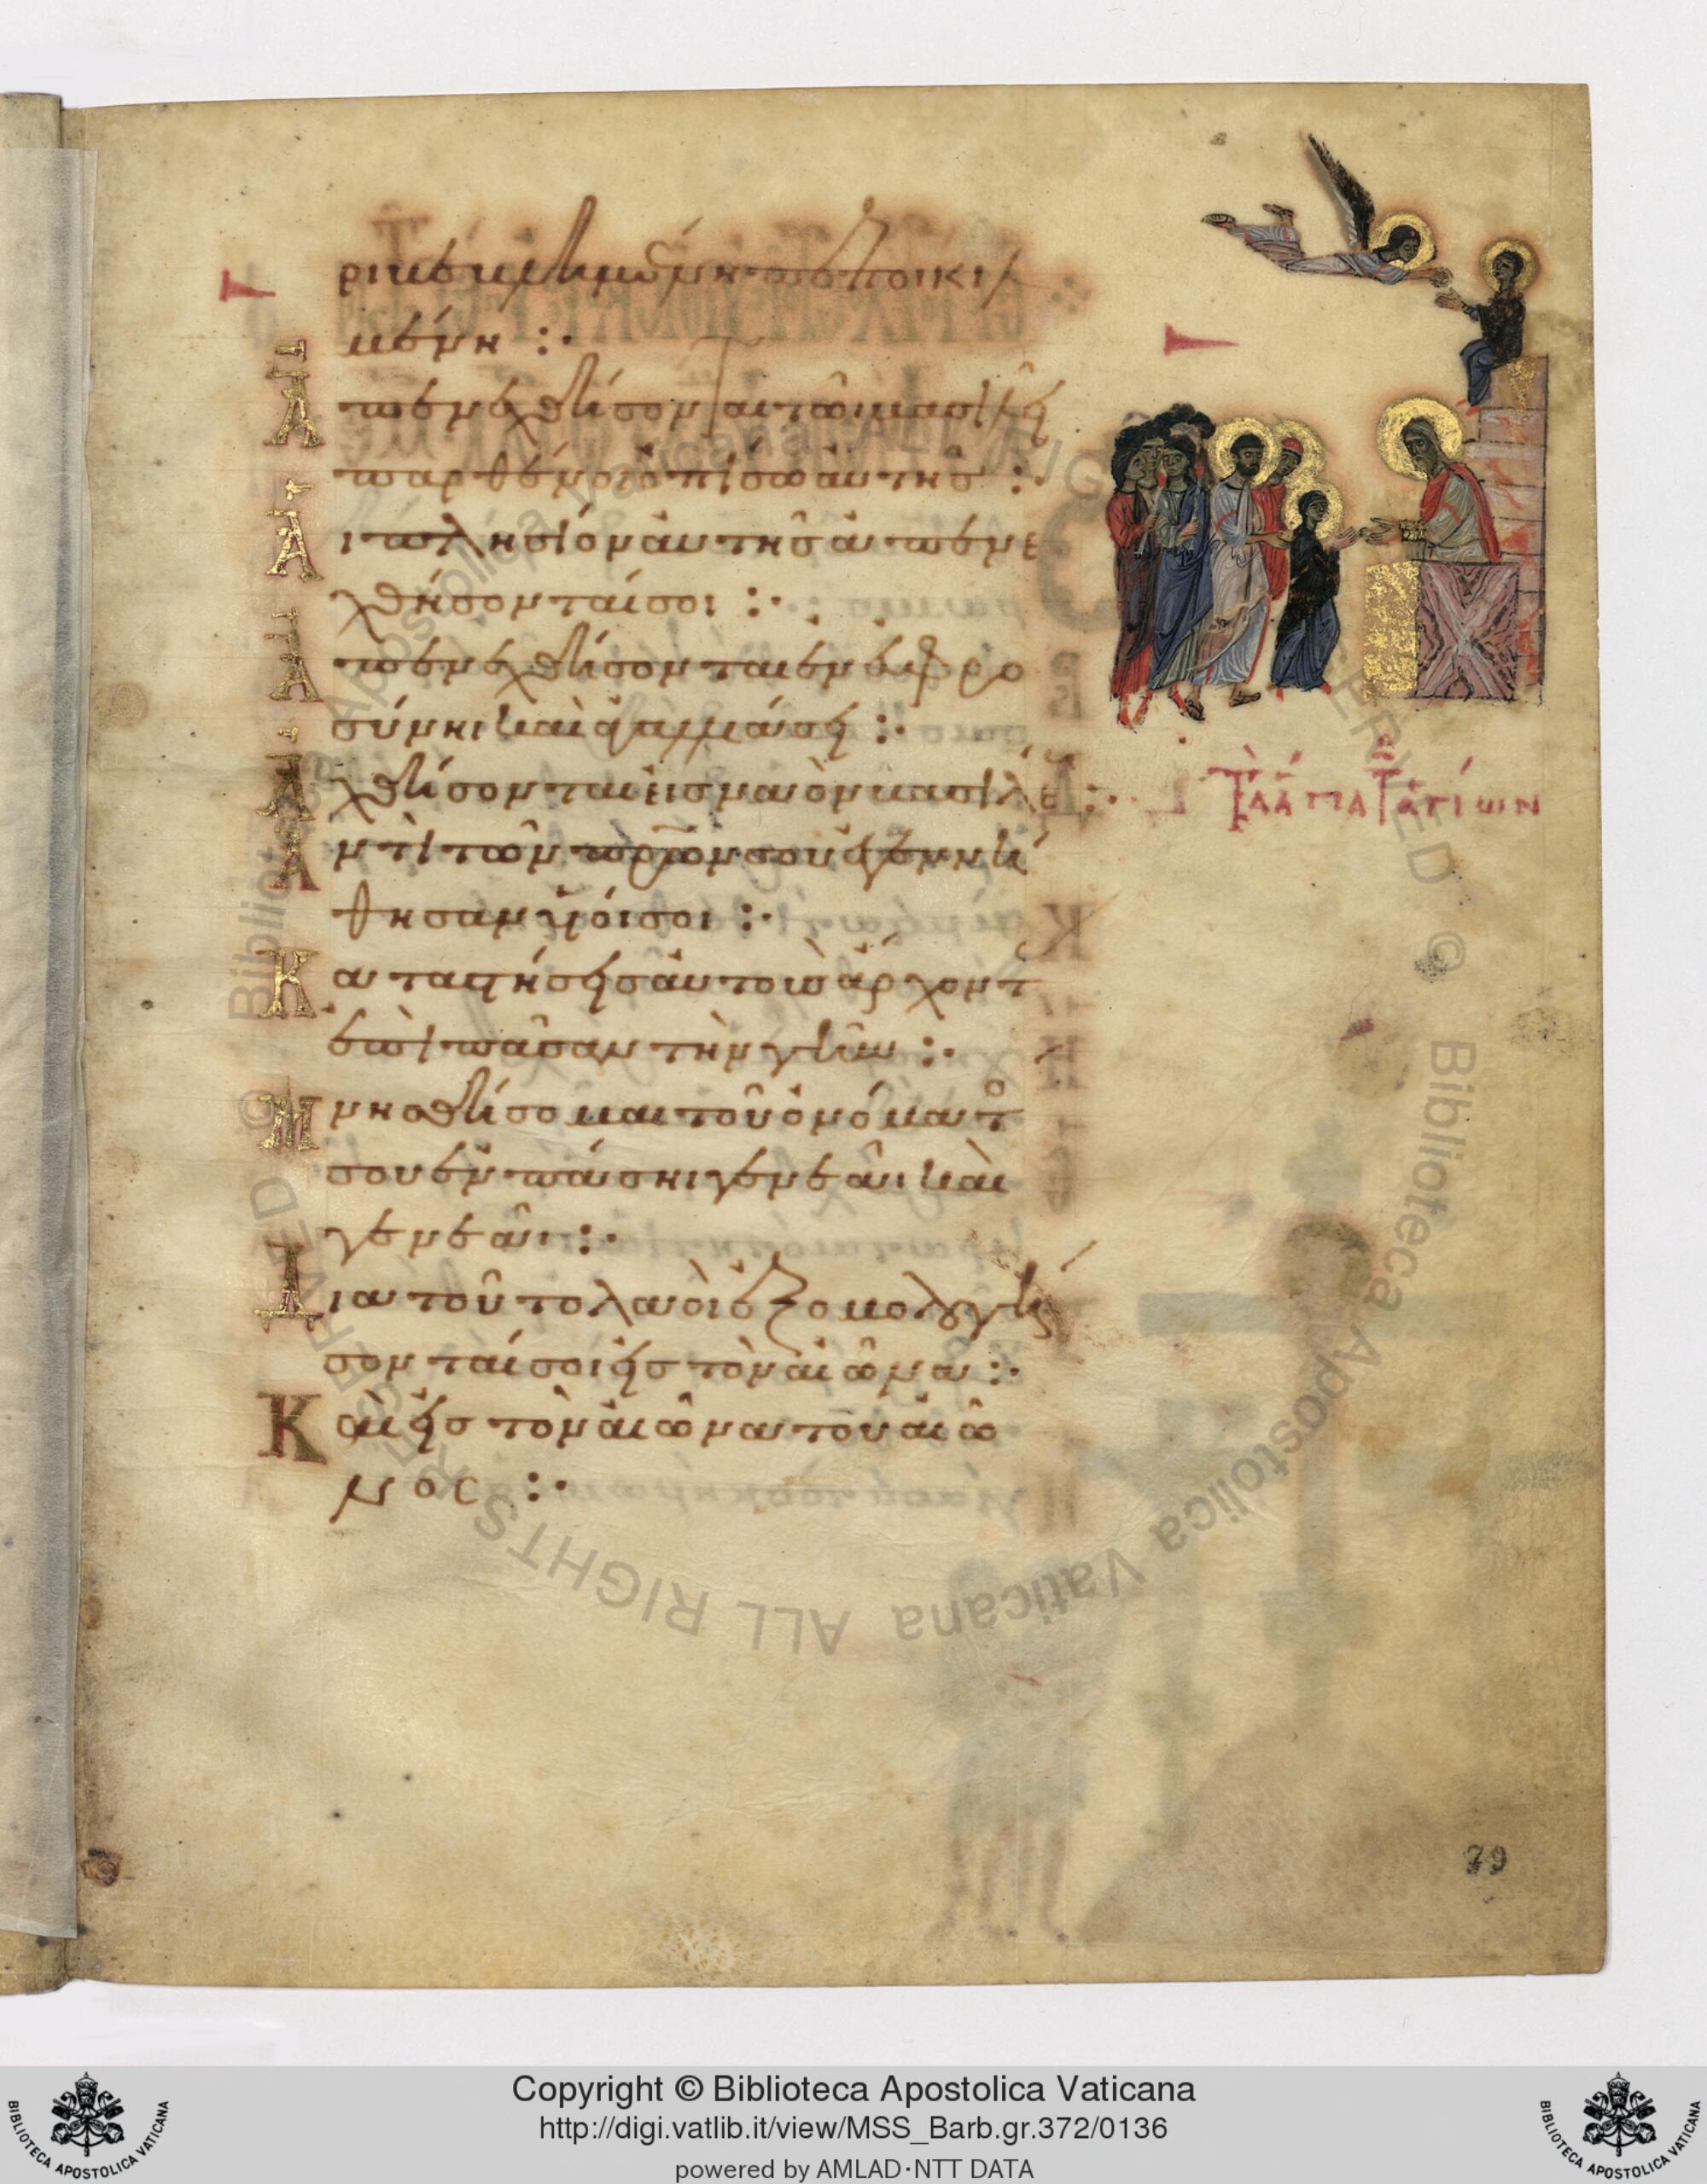 ριβεβλημένη πεποικιλ
μένη :·
Ἀπενεχθήσονται τῶ βασιλεῖ
παρθένοι ὀπίσω αὐτῆς :·
Ἁι πλησίον αὐτῆς ἀπενε
χθήσονταί σοι :·
Ἀπενεχθήσονται ἐν εὐφρο
σύνηι καὶ ἀγαλλιάσει :·
Ἀχθήσονται εἰς ναὸν βασιλέ
Ἀντὶ τῶν πρων σου ἐγεννή
θησαν υἱοί σοι :·
Καταστήσεις αὐτοὺς ἄρχοντ
ἐπὶ πᾶσαν τὴν γῆν :·
Μνησθήσομαι τοῦ ὀνόματ
σου ἐν πάσηι γενεᾶι καὶ
γενεᾶι :·
Διατοῦτο λαοὶ ἐξομολογή
σονταί σοι εἰς τὸν αἰῶνα :·
Καὶ εἰς τὸν αἰῶνα τοῦ αἰῶ
νος :·
Τὰ ἅγια τῶν ἁγίων
79
Copyright © Biblioteca Apostolica Vaticana
http://digi.vatlib.it/view/MSS_Barb.gr.372/0136
powered by AMLAD·NTT DATA
BIBLIOTECA APOSTOLICA VATICANA
BIBLIOTECA APOSTOLICA VATICANA